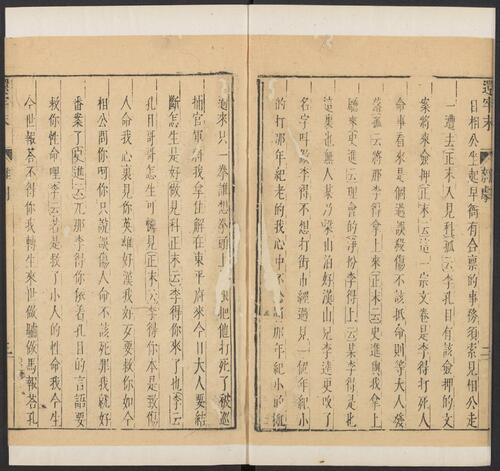 還牢末
雜劇
二
日相公起早衙有合禀的事務須索見相公走
一遭去正末入見科孤云李孔目有該僉押的文
案將來僉押正末云這一宗文卷是李得打死人
命事看來是個過誤殺傷不該抵命則等大人發
落孤云將那李得拏上來正末云史進與我拏上
廳來史進云理會的淨扮李得上云某李得是也
這裏也無人某乃梁山泊好漢山兒李逵更改了
名字叫做李得不想打街市經過見一個年紀小
的打那年紀老的我心中不忿將那年紀小的
過來只一拳誰想拳頭上 把他打死了被巡
捕官軍將我拿住解在東平府來今日大人要結
斷怎生是好做見科正末云李得你來了也李云
孔目哥哥怎生可憐見正末云李得你本是致傷
人命我心裏見你英雄好漢我好歹要救你如今
相公問你呵你只說誤傷人命不該死罪我就好
番案了史進云兀那李得你依着孔目的言語要
救你性命哩李云若是救了小人的性命我今生
今世報荅不得你我轉生來世做驢做馬報荅孔
還牢末
雜劇
三